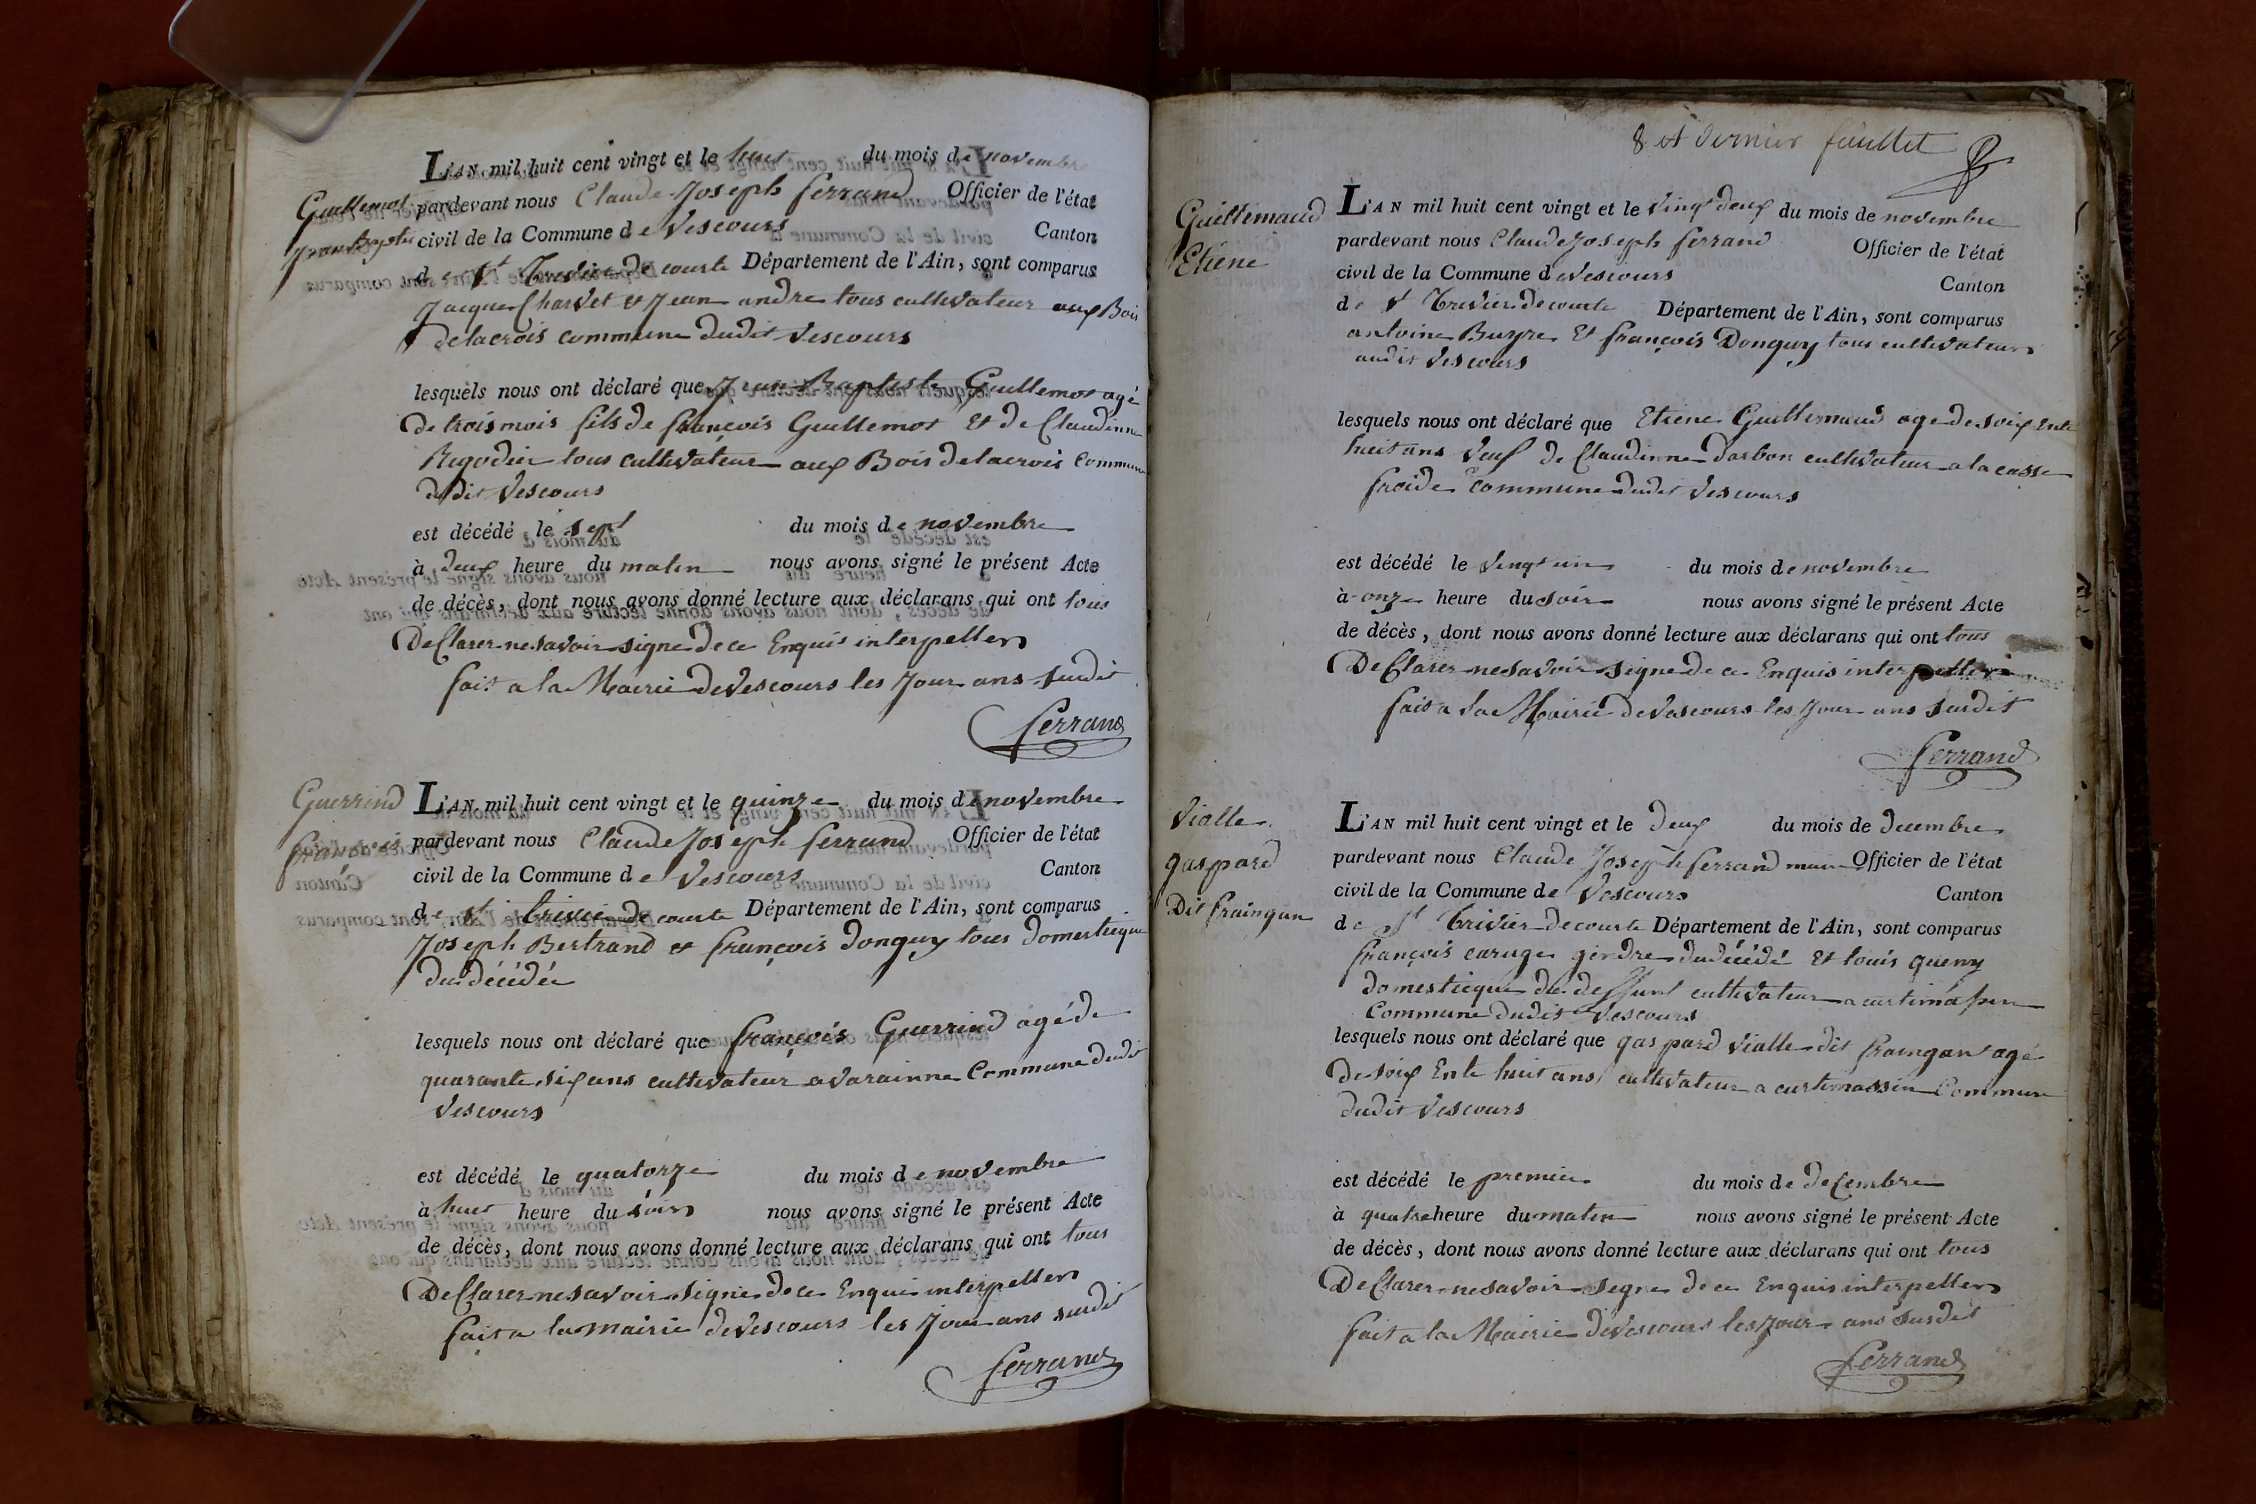 Guillemot
jean Baptiste
L'AN mil huit cent vingt et le huit du mois de novembre
pardevant nous Claude Joseph ferrand Officier de l'état
civil de la Commune de Vescours Canton
de St Trivier de courte Département de l'Ain, sont comparus
Jacque Charvet et Jean andre tous cultivateur aux Bois
delacrois commune dudit Vescours
lesquels nous ont déclaré que jean Baptiste Guillemot agé
De trois mois fils de françois Guillemot Et de Claudinne
Regodier tous cultivateur aux Bois delacrois Commune
dudit Vescours
est décédé le sept du mois de novembre
à deux heure du matin nous avons signé le présent Acte
de décès, dont nous avons donné lecture aux déclarans qui ont tous
DeClarer ne savoir signe de ce Enquis interpeller
fait a la Mairie de Vescours les Jour ans Surdit
ferrand
Guerrind
françois
L'AN mil huit cent vingt et le quinze du mois de novembre
pardevant nous Claude Joseph ferrand Officier de l'état
civil de la Commune de Vescours Canton
de St Trivier de courte Département de l'Ain, sont comparus
Joseph Bertrand et françois donguy tous domesticque
du décédée
lesquels nous ont déclaré que françois Guerrind agé de
quarante six ans cultivateur a varainne Commune dudit
Vescours
est décédé le quatorze du mois de novembre
à huit heure du soir nous avons signé le présent Acte
de décès, dont nous avons donné lecture aux déclarans qui ont tous
DeClarer ne savoir signe de ce Enquis interpeller
fait a la mairie de Vescours les Jour ans surdit
ferrand
8 et dernier feuillet
Guillemaud
Etiene
L'AN mil huit cent vingt et le vingt deux du mois de novembre
pardevant nous Claude Joseph ferrand Officier de l'état
civil de la Commune de Vescours Canton
de St Trivier de courte Département de l'Ain, sont comparus
antoine Buyre Et françois Donguy tous cultivateurs
audit Vescours
lesquels nous ont déclaré que Etiene Guillemaud age de soix Ente
huit ans Veuf de Claudinne darbon cultivateur a la casse
froide Commune dudit Vescours
est décédé le vingt un du mois de novembre
à onze heure du soir nous avons signé le présent Acte
de décès, dont nous avons donné lecture aux déclarans qui ont tous
DeClarer ne savoir signe de ce Enquis interpeller
fait a la Mairie de Vescours les Jour ans surdit
ferrand
Vialle
gaspard
Dit fraingan
L'AN mil huit cent vingt et le deux du mois de decembre
pardevant nous Claude Joseph ferrand maire Officier de l'état
civil de la Commune de Vescours Canton
de St Trivier de courte Département de l'Ain, sont comparus
françois caruge gendre du décédé Et louis queny
domesticque du deffunt cultivateur a curtimassin
Commune dudit Vescours
lesquels nous ont déclaré que gaspard Vialle dit fraingan agé
de soix Ente huit ans cultivateur a curtimassin Commune
dudit Vescours
est décédé le premier du mois de deCembre
à quatre heure du matin nous avons signé le présent Acte
de décès, dont nous avons donné lecture aux déclarans qui ont tous
DeClarer ne savoir signe de ce Enquis interpeller
fait a la Mairie de Vescours les Jour ans surdit
ferrand